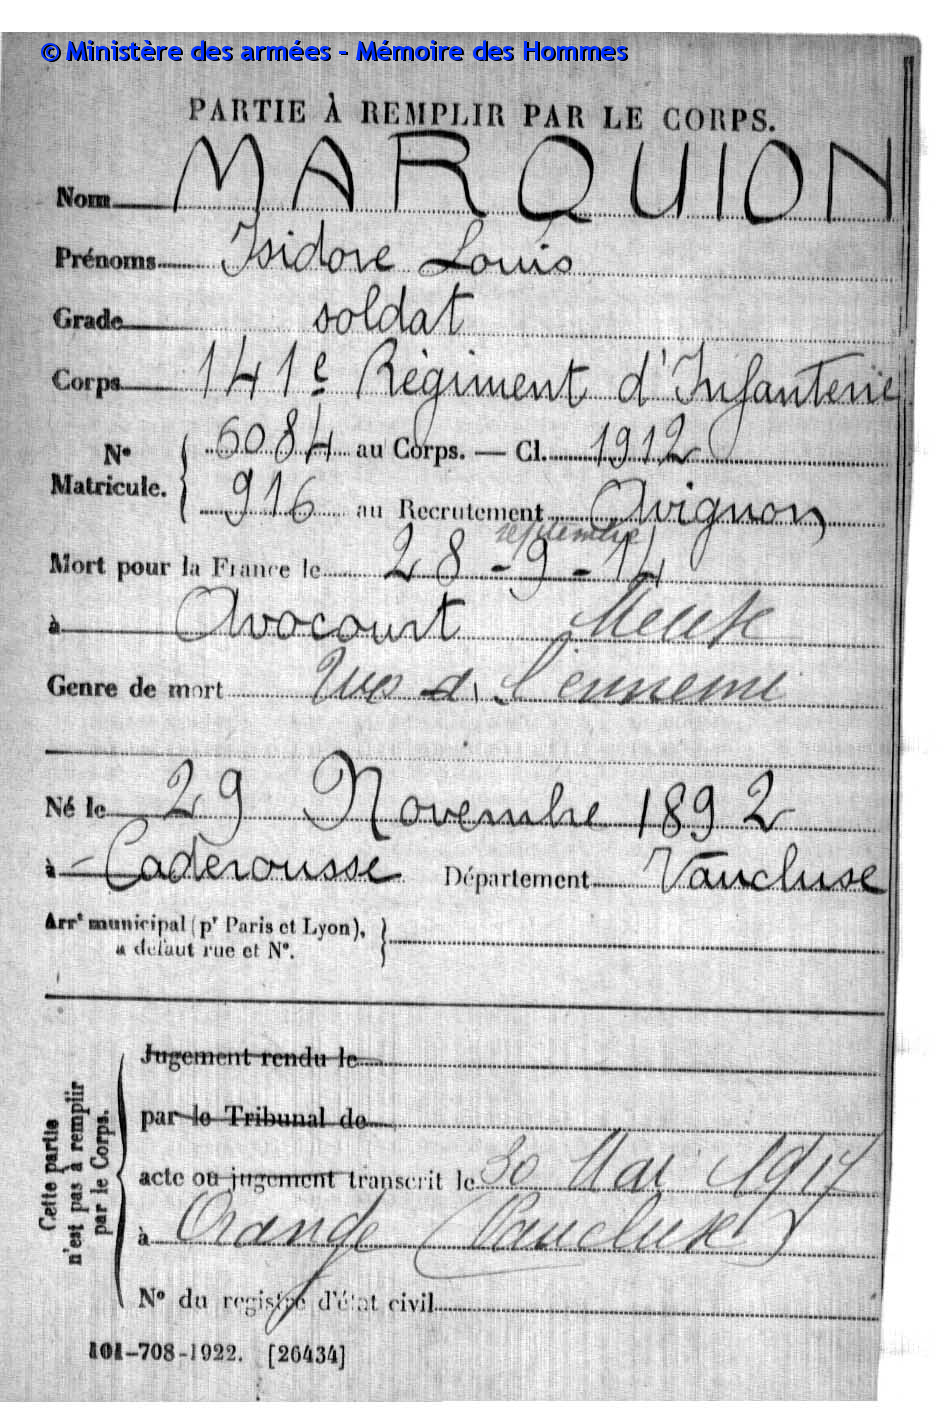 © Ministère des armées - Mémoire des Hommes
PARTIE À REMPLIR PAR LE CORPS.
Nom MARQUION
Prénoms Isidore Louis
Grade soldat
Corps 141e Régiment d'Infanterie
Nº Matricule. { 6084 au Corps. — Cl. 1912
916 au Recrutement Avignon
septembre
Mort pour la France le 28 - 9 - 14
à Avocourt Meuse
Genre de mort Tué à l'ennemi
Né le 29 Novembre 1892
à Caderousse Département Vaucluse
Arrt municipal (pr Paris et Lyon), }
à défaut rue et Nº.
Cette partie n'est pas à remplir par le Corps.
Jugement rendu le
par le Tribunal de
acte ou jugement transcrit le 30 Mai 1917
à Orange (Vaucluse)
Nº du registre d'état civil
101-708-1922. [26434]